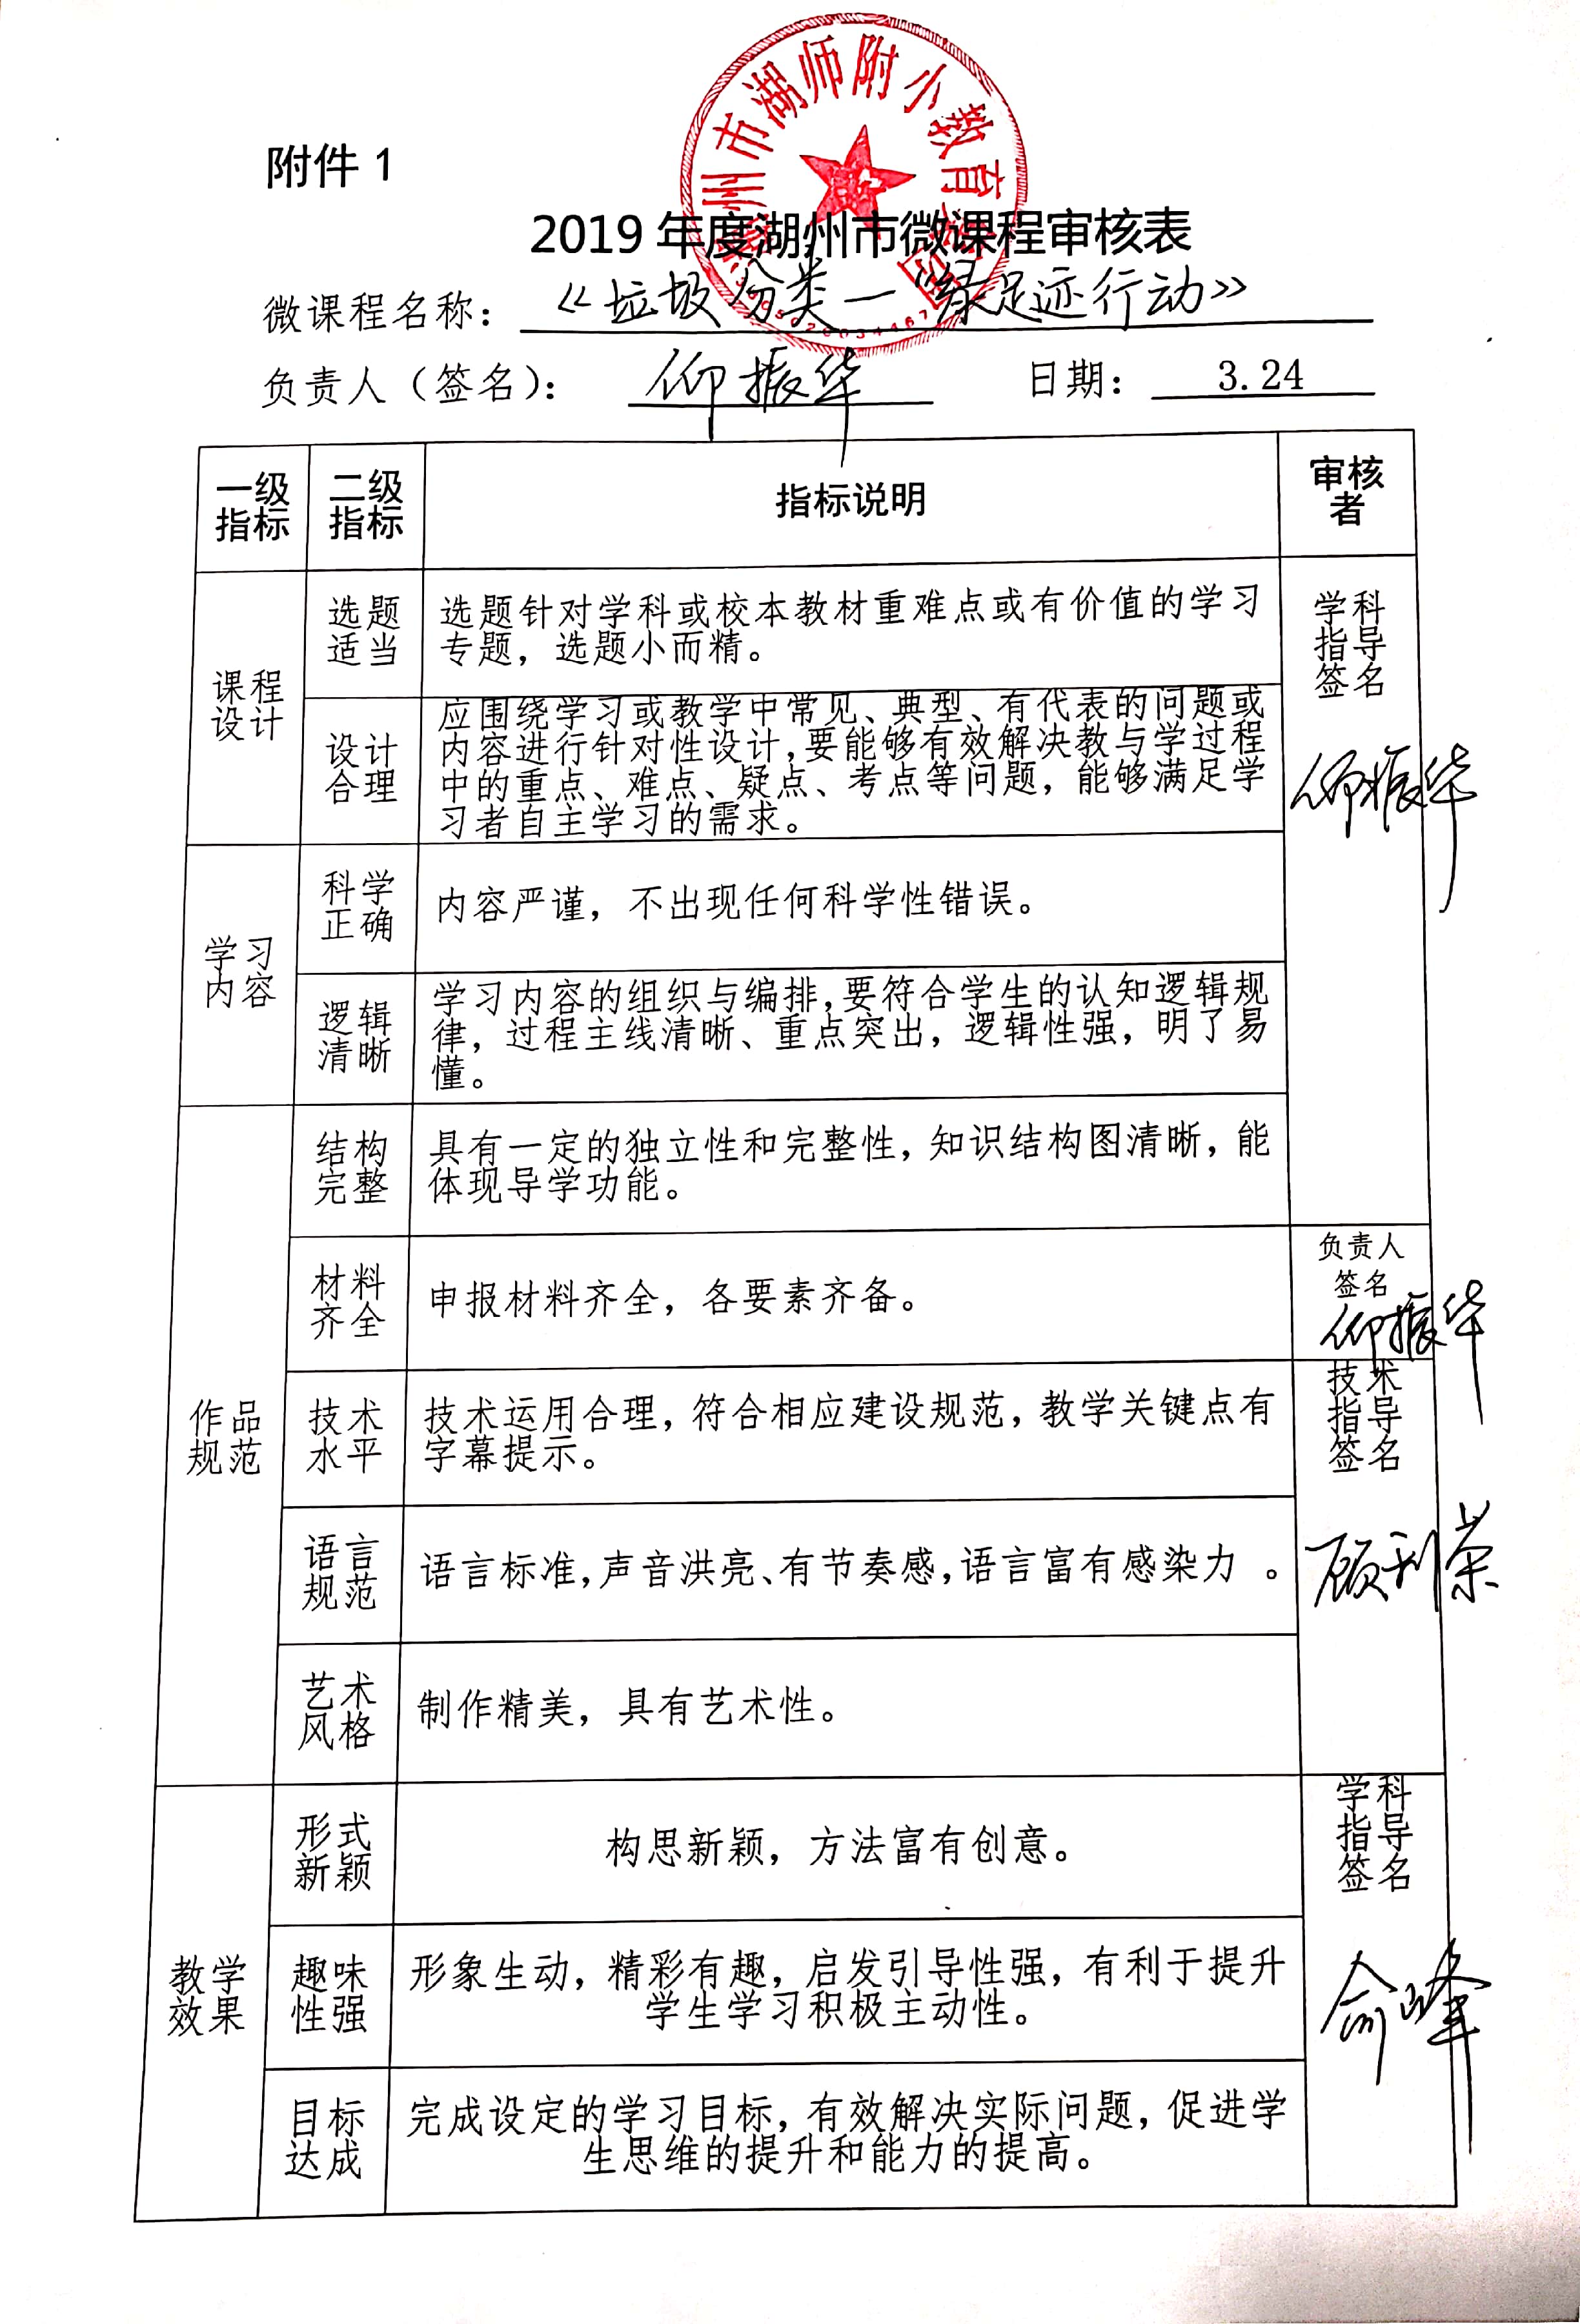 湖州市湖师附小教育集团
附件 1
2019 年度湖州市微课程审核表
微课程名称：《垃圾分类—“绿足迹行动》
负责人（签名）： 仰振华 日期： 3.24
一级
指标
二级
指标
指标说明
审核
者
课程
设计
选题
适当
选题针对学科或校本教材重难点或有价值的学习
专题，选题小而精。
学科
指导
签名
仰振华
设计
合理
应围绕学习或教学中常见、典型、有代表的问题或
内容进行针对性设计，要能够有效解决教与学过程
中的重点、难点、疑点、考点等问题，能够满足学
习者自主学习的需求。
学习
内容
科学
正确
内容严谨，不出现任何科学性错误。
逻辑
清晰
学习内容的组织与编排，要符合学生的认知逻辑规
律，过程主线清晰、重点突出，逻辑性强，明了易
懂。
作品
规范
结构
完整
具有一定的独立性和完整性，知识结构图清晰，能
体现导学功能。
材料
齐全
申报材料齐全，各要素齐备。
负责人
签名
仰振华
技术
水平
技术运用合理，符合相应建设规范，教学关键点有
字幕提示。
技术
指导
签名
顾利荣
语言
规范
语言标准，声音洪亮、有节奏感，语言富有感染力 。
艺术
风格
制作精美，具有艺术性。
教学
效果
形式
新颖
构思新颖，方法富有创意。
学科
指导
签名
俞峰
趣味
性强
形象生动，精彩有趣，启发引导性强，有利于提升
学生学习积极主动性。
目标
达成
完成设定的学习目标，有效解决实际问题，促进学
生思维的提升和能力的提高。